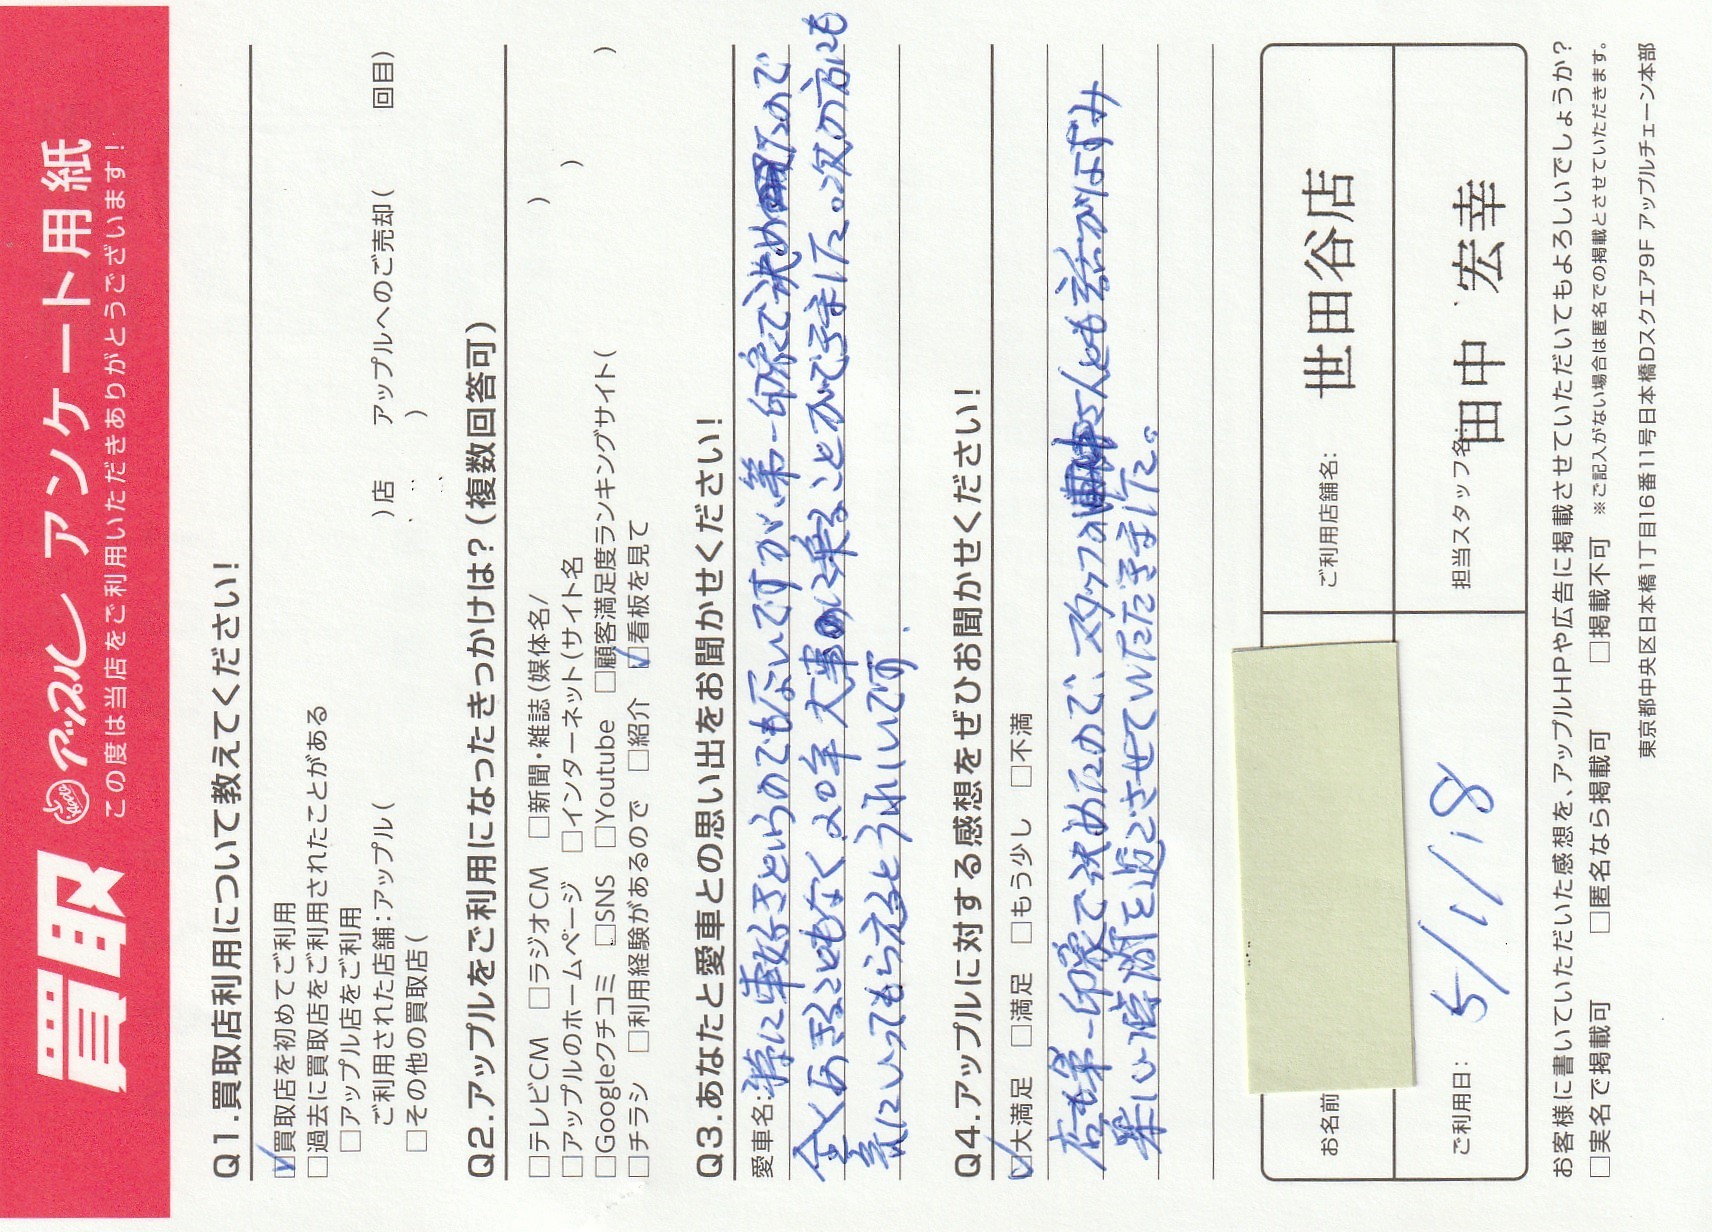 買取 アップル アンケート用紙
この度は当店をご利用いただきありがとうございます!
Q1.買取店利用について教えてください!
☑買取店を初めてご利用
□過去に買取店をご利用されたことがある
□アップル店をご利用
ご利用された店舗:アップル( )店 アップルへのご売却( 回目)
□その他の買取店( )
Q2.アップルをご利用になったきっかけは?(複数回答可)
□テレビCM □ラジオCM □新聞・雑誌(媒体名/ )
□アップルのホームページ □インターネット(サイト名 )
□Googleクチコミ □SNS □Youtube □顧客満足度ランキングサイト( )
□チラシ □利用経験があるので □紹介 ☑看板を見て
Q3.あなたと愛車との思い出をお聞かせください!
愛車名:特に車好きというのでもないですが、第一印象で決めたので
全くあきることもなく 大事に乗ることができました。次の方にも
気にいってもらえるとうれしいです
Q4.アップルに対する感想をぜひお聞かせください!
☑大満足 □満足 □もう少し □不満
店も第一印象で決めたので、スタッフの さんとも話がはずみ
楽しい時間を過ごさせていただきました。
お名前
ご利用店舗名: 世田谷店
ご利用日: 5/11/18
担当スタッフ名: 田中 宏幸
お客様に書いていただいた感想を、アップルHPや広告に掲載させていただいてもよろしいでしょうか?
□実名で掲載可 □匿名なら掲載可 □掲載不可 ※ご記入がない場合は匿名での掲載とさせていただきます。
東京都中央区日本橋1丁目16番11号日本橋Dスクエア9F アップルチェーン本部